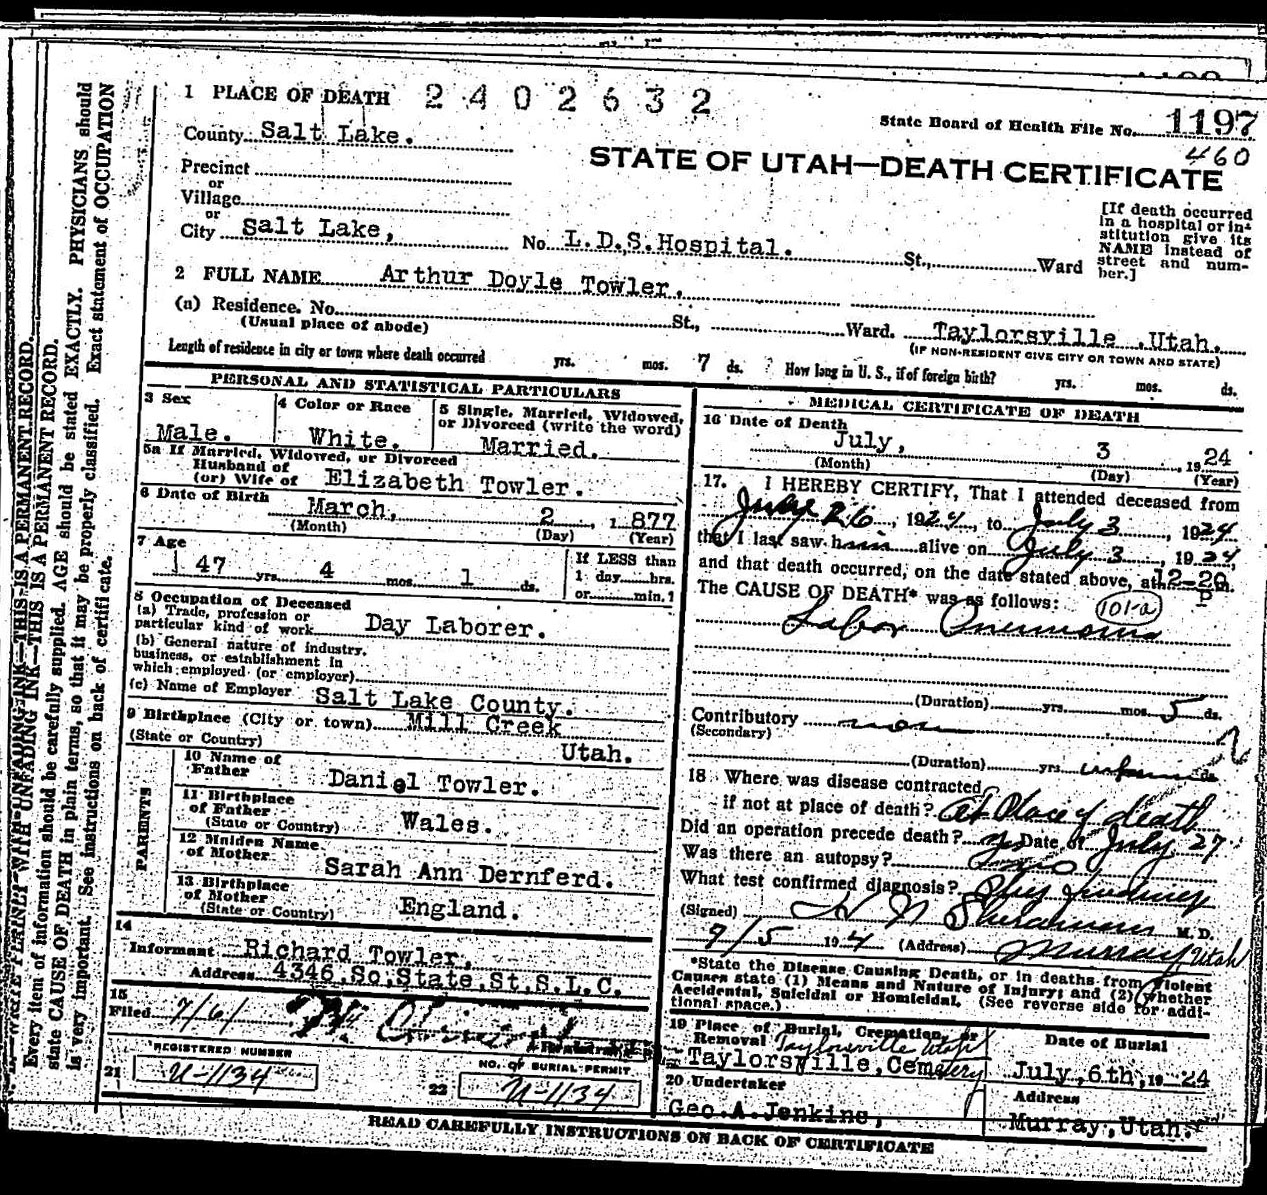 1 PLACE OF DEATH 2402632
State Board of Health File No. 1197
County Salt Lake.
460
STATE OF UTAH—DEATH CERTIFICATE
Precinct
or
Village
or
City Salt Lake, No. L.D.S.Hospital. St., Ward
[If death occurred
in a hospital or in-
stitution give its
NAME instead of
street and num-
ber.]
2 FULL NAME Arthur Doyle Towler.
(a) Residence. No. St., Ward. Taylorsville ,Utah.
(Usual place of abode) (IF NON-RESIDENT GIVE CITY OR TOWN AND STATE)
Length of residence in city or town where death occurred yrs. mos. 7 ds. How long in U. S., if of foreign birth? yrs. mos. ds.
PERSONAL AND STATISTICAL PARTICULARS
3 Sex
Male.
4 Color or Race
White.
5 Single, Married, Widowed,
or Divorced (write the word)
Married.
5a If Married, Widowed, or Divorced
Husband of
(or) Wife of Elizabeth Towler.
6 Date of Birth March, 2 , 1877
(Month) (Day) (Year)
7 Age
47 yrs. 4 mos. 1 ds.
If LESS than
1 day hrs.
or min.?
8 Occupation of Deceased
(a) Trade, profession or
particular kind of work Day Laborer.
(b) General nature of industry,
business, or establishment in
which employed (or employer)
(c) Name of Employer Salt Lake County.
9 Birthplace (City or town) Mill Creek
(State or Country) Utah.
PARENTS
10 Name of
Father Daniel Towler.
11 Birthplace
of Father
(State or Country) Wales.
12 Maiden Name
of Mother Sarah Ann Dernferd.
13 Birthplace
of Mother
(State or Country) England.
14
Informant Richard Towler,
Address 4346,So,State,St,S.L.C.
15
Filed 7/6/
Registrar
REGISTERED NUMBER
21 U-1134
NO. OF BURIAL PERMIT
22 U-1134
MEDICAL CERTIFICATE OF DEATH
16 Date of Death
July, 3 , 1924
(Month) (Day) (Year)
17. I HEREBY CERTIFY, That I attended deceased from
26, 1924, to July 3, 1924
that I last saw him alive on July 3 1924,
and that death occurred, on the date stated above, at 12-20 P m.
The CAUSE OF DEATH* was as follows: 101-a
Labor Pneumonia
(Duration) yrs. mos. 5 ds.
Contributory
(Secondary)
(Duration) yrs. ds.
18 Where was disease contracted
if not at place of death? at Place of death
Did an operation precede death? Date of July 27
Was there an autopsy? no
What test confirmed diagnosis?
(Signed) M. D.
7/5 1924 (Address) Murray, Utah
*State the Disease Causing Death, or in deaths from Violent
Causes state (1) Means and Nature of Injury; and (2) whether
Accidental, Suicidal or Homicidal. (See reverse side for addi-
tional space.)
19 Place of Burial, Cremation, or
Removal Taylorsville Utah
Taylorsville, Cemetery
Date of Burial
July,6th,1924
20 Undertaker
Geo.A.Jenkins,
Address
Murray,Utah.
READ CAREFULLY INSTRUCTIONS ON BACK OF CERTIFICATE
WITH UNFADING INK—THIS IS A PERMANENT RECORD.
Every item of information should be carefully supplied. AGE should be stated EXACTLY. PHYSICIANS should
state CAUSE OF DEATH in plain terms, so that it may be properly classified. Exact statement of OCCUPATION
is very important. See instructions on back of certificate.